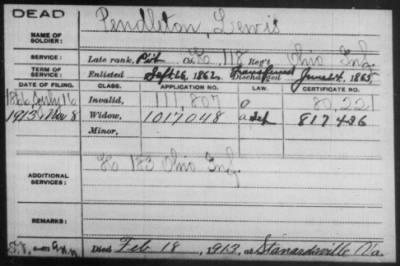 DEAD
NAME OF SOLDIER: Pendleton, Lewis
SERVICE: Late rank, Pvt Co. G, 118 Reg't Ohio Inf.
TERM OF SERVICE: Enlisted Sept 26, 1862 Transferred Discharged June 24, 1865
DATE OF FILING. CLASS. APPLICATION NO. LAW. CERTIFICATE NO.
1866 July 16 Invalid, 111,807 O 80,221
1913 Nov 8 Widow, 1017048 817426
Minor,
ADDITIONAL SERVICES: 183 Ohio Inf.
REMARKS:
Died Feb 18, 1913, at Stanardsville Va.